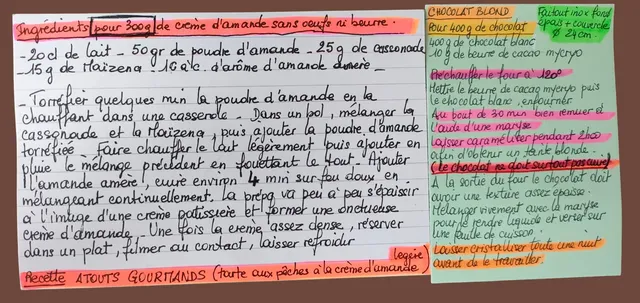 Ingrédients pour 300g de crème d'amande sans oeufs ni beurre.
- 20 cl de lait - 50gr de poudre d'amande - 25g de cassonade
- 15g de Maïzena - 1G à c. d'arôme d'amande amère -
- Torréfier quelques min la poudre d'amande en la
chauffant dans une casserole. Dans un bol, mélanger la
cassonade et la Maïzena, puis ajouter la poudre d'amande
torréfiée. Faire chauffer le lait légèrement puis ajouter en
pluie le mélange précédent en fouettant le tout. Ajouter
l'amande amère, cuire environ 4 min sur feu doux en
mélangeant continuellement. la prépa va peu à peu s'épaissir
à l'image d'une crème patissière et former une onctueuse
crème d'amande. Une fois la creme assez dense, réserver
dans un plat, filmer au contact, laisser refroidir
légère
Recette ATOUTS GOURMANDS (tarte aux pêches à la crème d'amande)
CHOCOLAT BLOND
Pour 400g de chocolat
400g de chocolat blanc
10g de beurre de cacao mycryo
Faitout inox fond
épais + couvercle
Ø 24cm
Préchauffer le four à 120°
Mettre le beurre de cacao mycryo puis
le chocolat blanc, enfourner
Au bout de 30 min bien remuer à
l'aide d'une maryse
Laisser caraméliser pendant 2h00
afin d'obtenir un teinte blonde.
(le chocolat ne doit surtout pas cuire)
À la sortie du four le chocolat doit
avoir une texture assez épaisse.
Mélanger vivement avec la maryse
pour le rendre liquide et verser sur
une feuille de cuisson.
Laisser cristalliser toute une nuit
avant de le travailler.